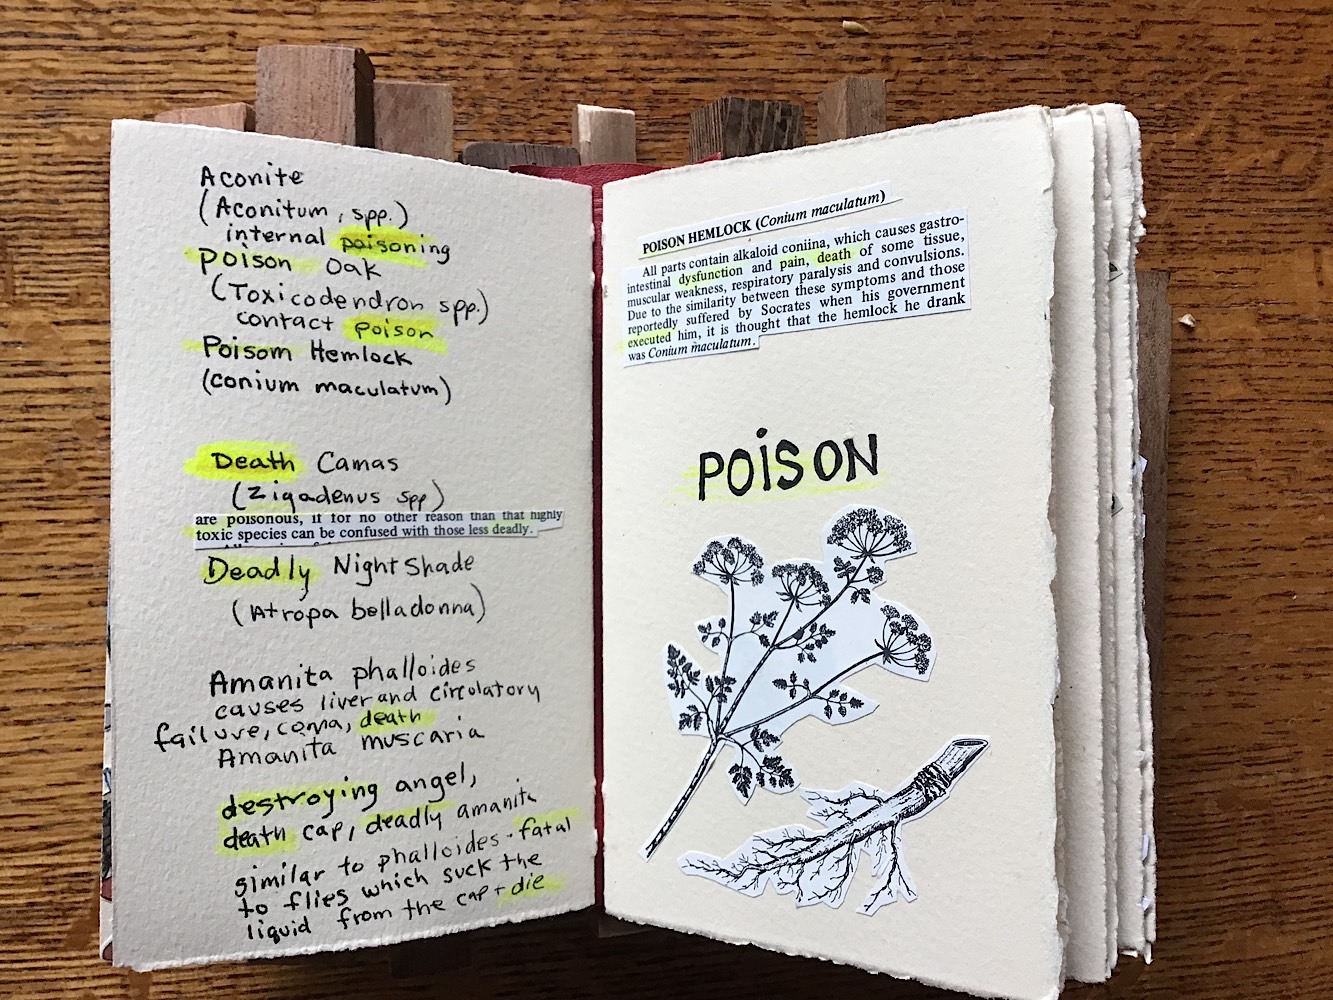 Aconite
(Aconitum, spp.)
internal poisoning
Poison Oak
(Toxicodendron spp.)
contact poison
Poisom Hemlock
(conium maculatum)
Death Camas
(Zigadenus spp)
are poisonous, if for no other reason than that highly
toxic species can be confused with those less deadly.
Deadly NightShade
(Atropa belladonna)
Amanita phalloides
causes liver and circulatory
failure, coma, death
Amanita muscaria
destroying angel,
death cap, deadly amanita
similar to phalloides - fatal
to flies which suck the
liquid from the cap + die
POISON HEMLOCK (Conium maculatum)
All parts contain alkaloid coniina, which causes gastro-
intestinal dysfunction and pain, death of some tissue,
muscular weakness, respiratory paralysis and convulsions.
Due to the similarity between these symptoms and those
reportedly suffered by Socrates when his government
executed him, it is thought that the hemlock he drank
was Conium maculatum.
POISON